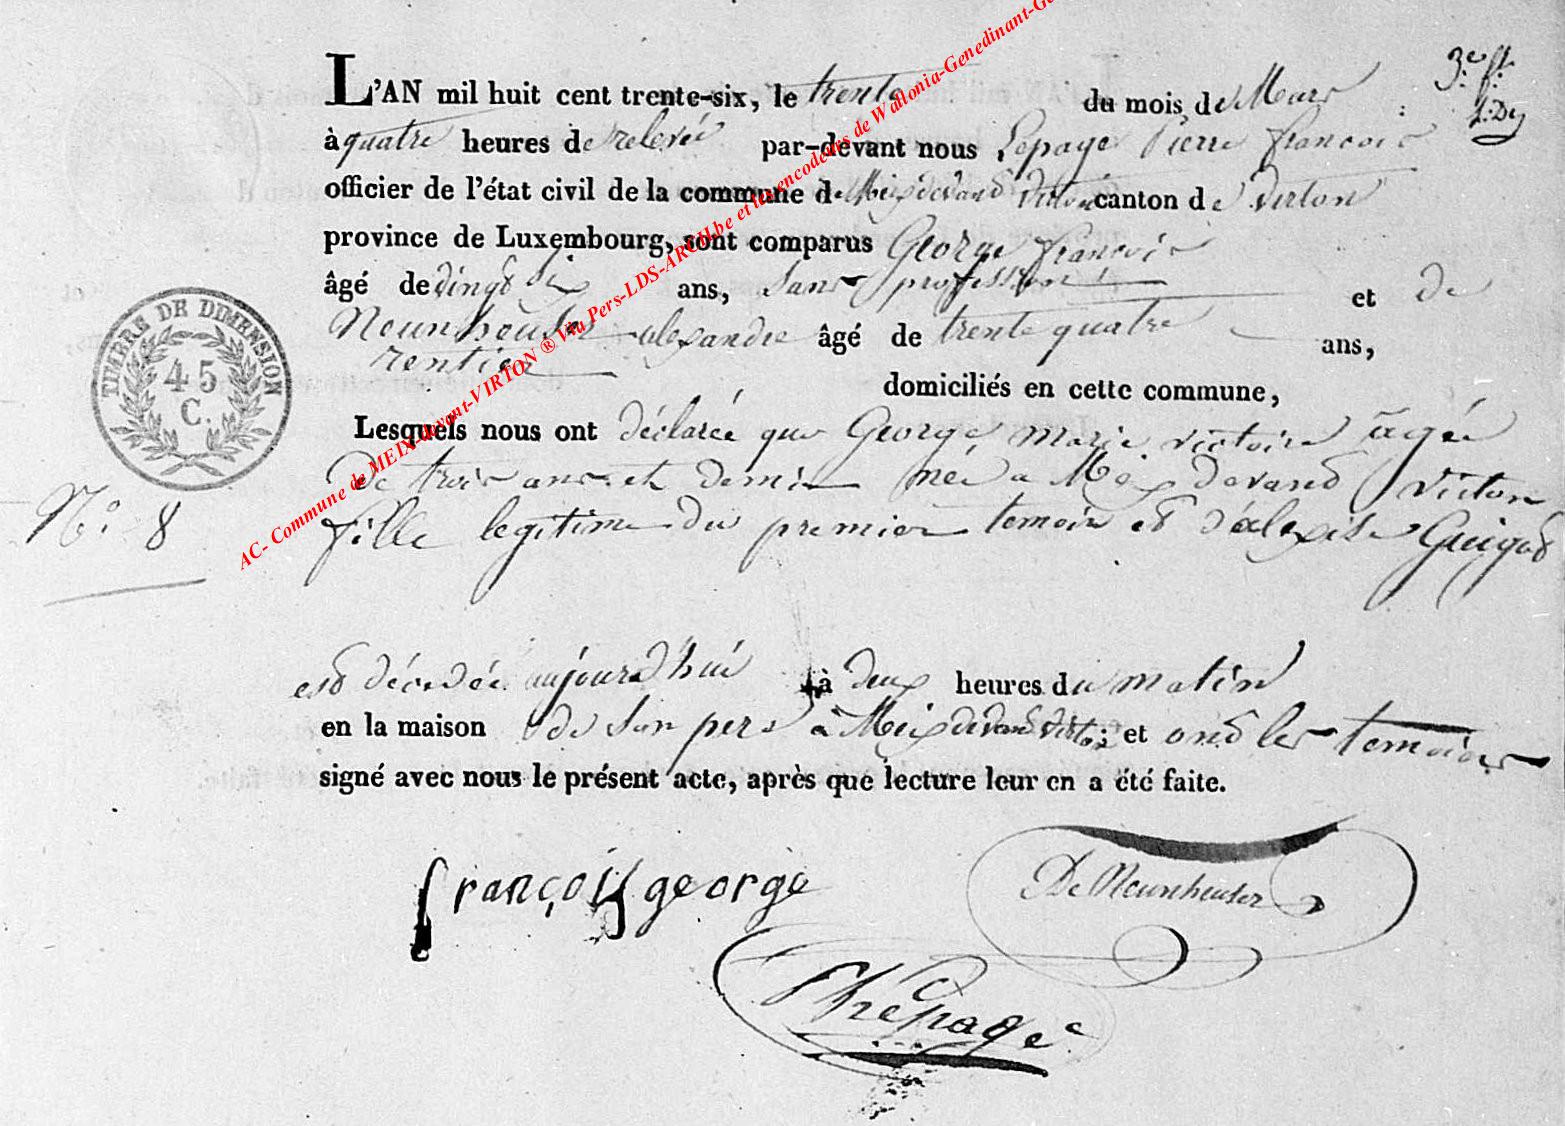 3.e f.t
L'AN mil huit cent trente-six, le trente du mois de Mars
à quatre heures de relevée par-devant nous Lepage Pierre françois
officier de l'état civil de la commune de Meix devand virton canton de virton
province de Luxembourg, sont comparus George françois
âgé de vingt six ans, sans profession et de
Neunheuser alexandre âgé de trente quatre ans,
rentier domiciliés en cette commune,
Lesquels nous ont déclarée que George marie victoire âgée
De trois ans et demi née a Meix devand Virton
fille legitime du premier temoin et d'alexise Guiyod
N.o 8
est décédée aujourd'hui à deux heures du matin
en la maison de son pere à Meix devand virton; et ond les temoins
signé avec nous le présent acte, après que lecture leur en a été faite.
françois george
De Neunheuser
Lepage
TIMBRE DE DIMENSION
45
C.
AC- Commune de MEIX-devant-VIRTON ® Via Pers-LDS-ARCH.be et les encodeurs de Wallonia-Genedinant-Ge